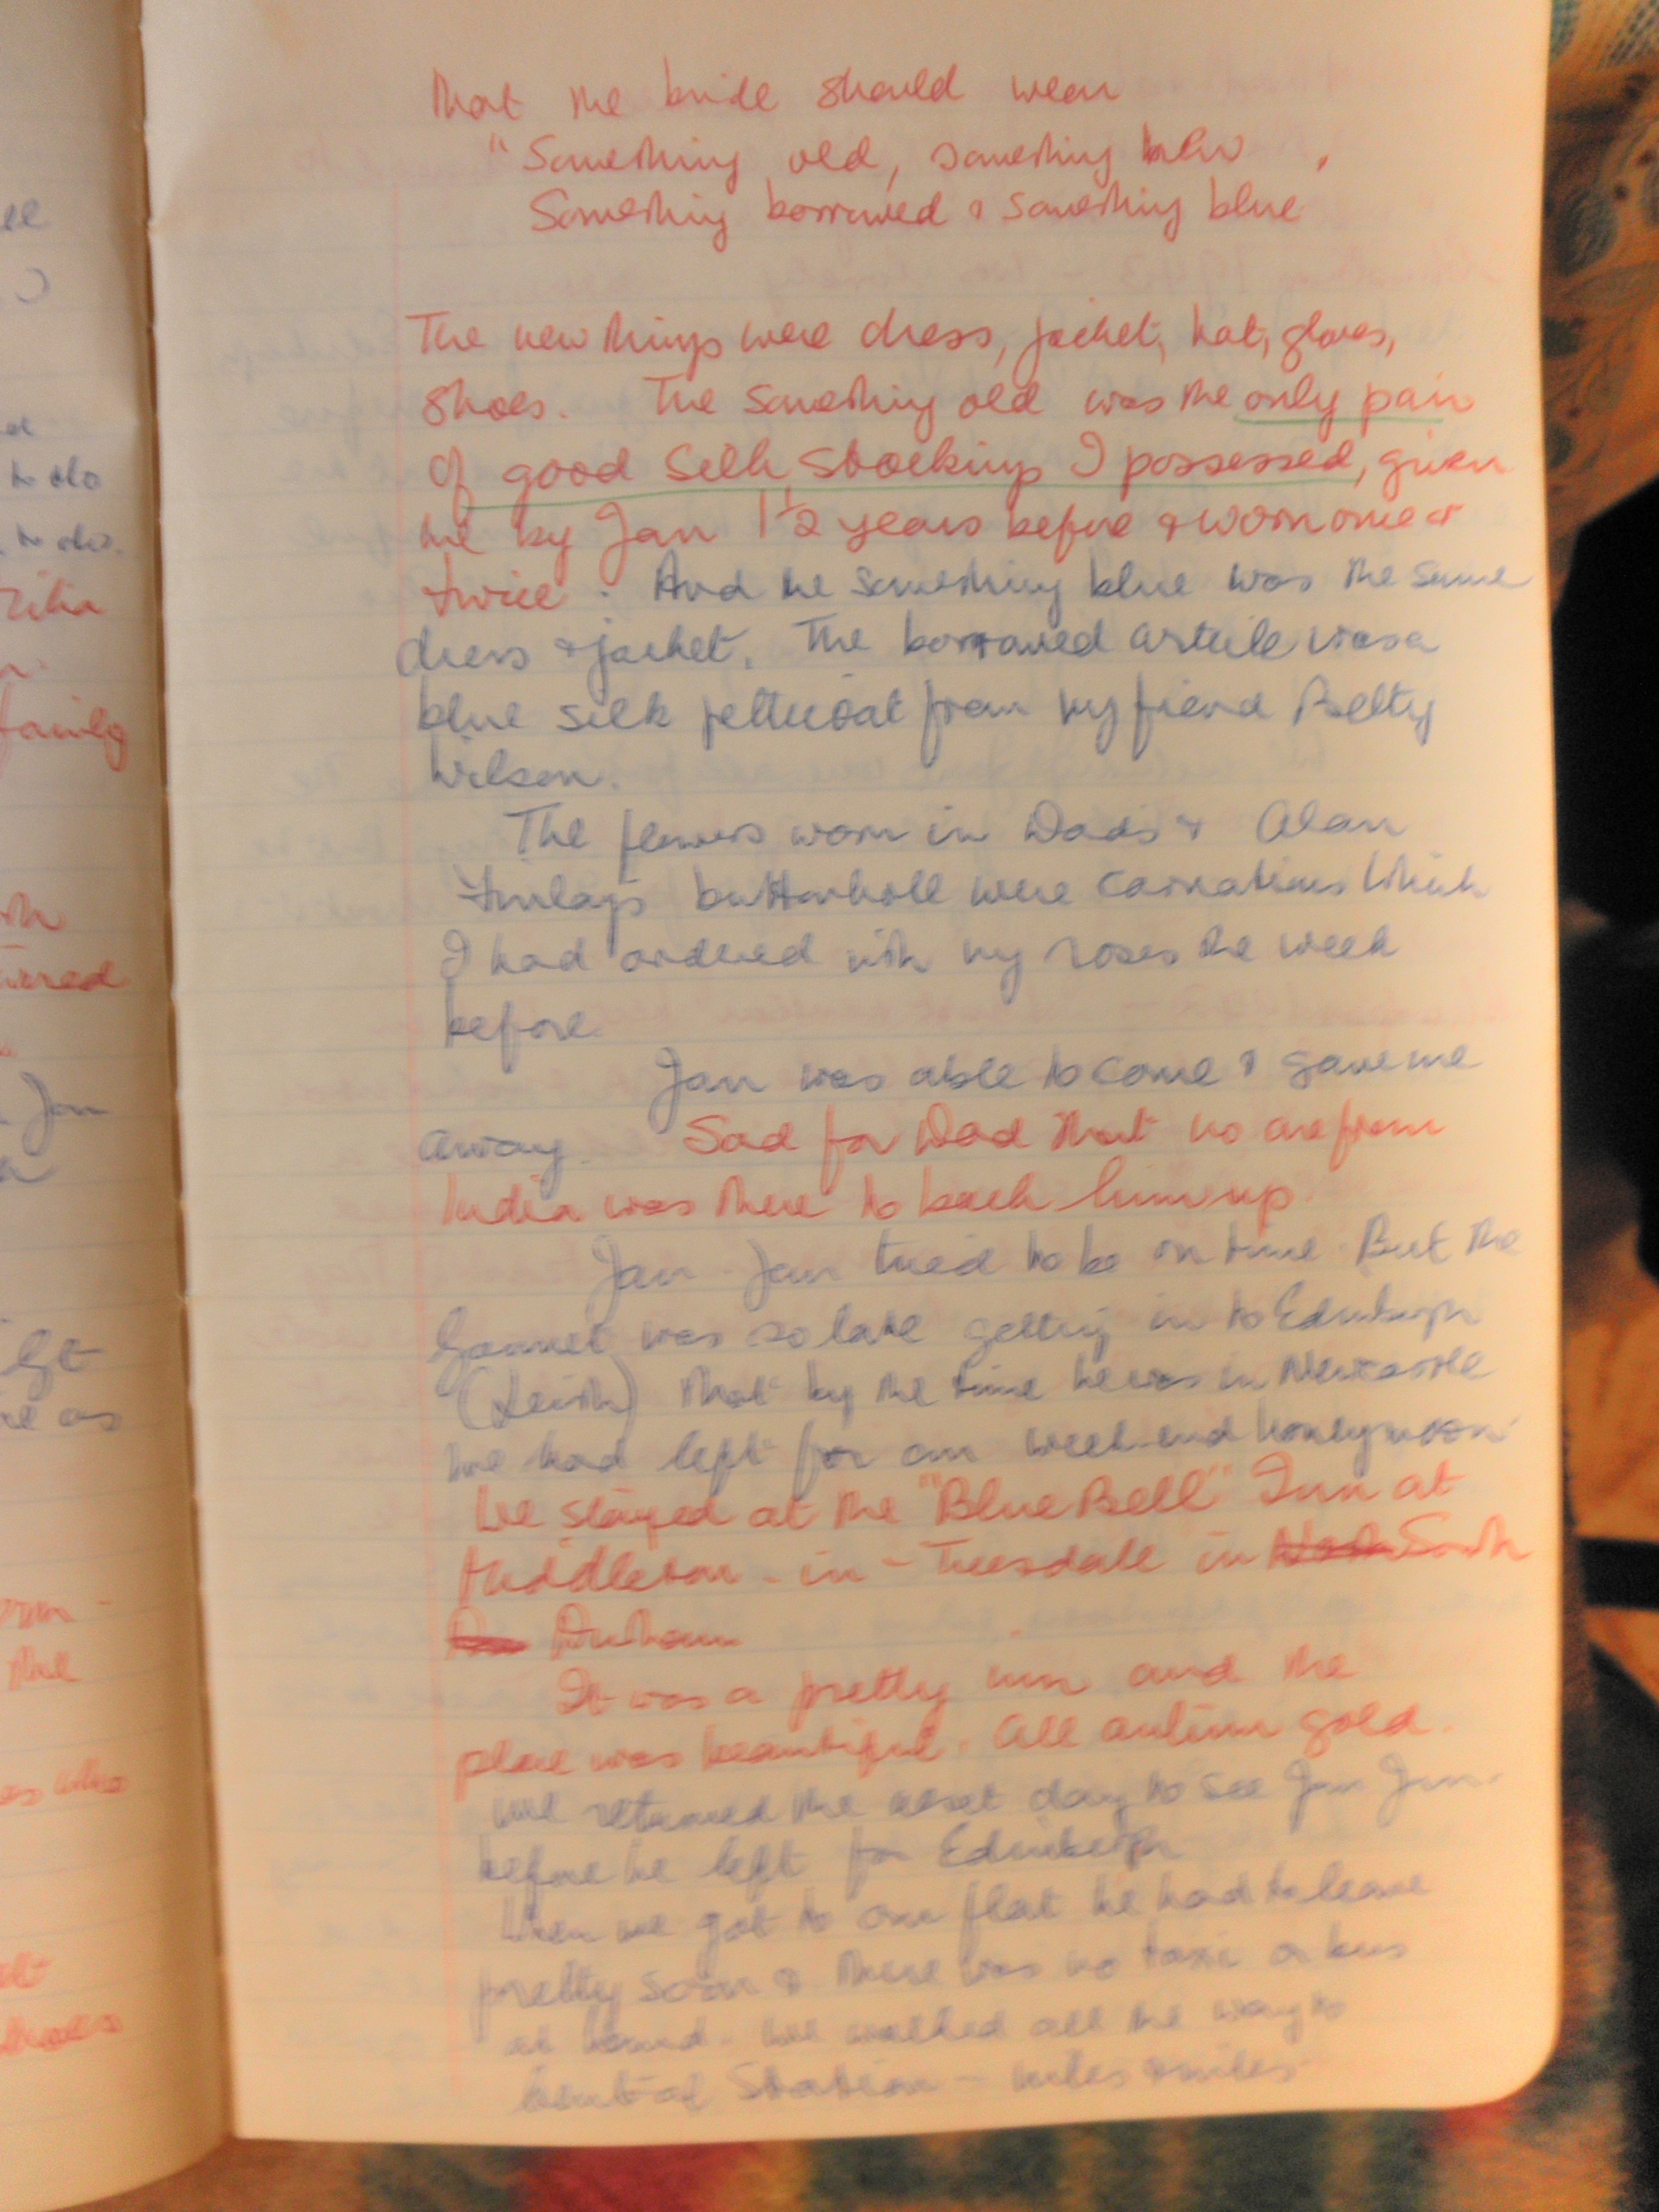 that the bride should wear
"Something old, something new,
Something borrowed & something blue
The new things were dress, jacket, hat, gloves,
shoes. The something old was the only pair
of good silk stockings I possessed, given
me by Jan 1½ years before & worn once or
twice. And the something blue was the same
dress & jacket. The borrowed article was a
blue silk petticoat from my friend Betty
Wilson.
The flowers worn in Dads & Alan
Finlays buttonhole were carnations which
I had ordered with my roses the week
before.
Jan was able to come & gave me
away. Sad for Dad that no one from
India was there to back him up.
Jan Jan tried to be on time. But the
was so late getting in to Edinburgh
(Leith) that by the time he was in Newcastle
we had left for our weekend honeymoon
We stayed at the "Blue Bell" Inn at
Middleton-in-Teesdale in
Durham
It was a pretty inn and the
place was beautiful. All autumn gold.
We returned the next day to see Jan Jan
before he left for Edinburgh
When we got to our flat he had to leave
pretty soon & there was no taxi or bus
at hand. We walked all the way to
Central Station - miles & miles